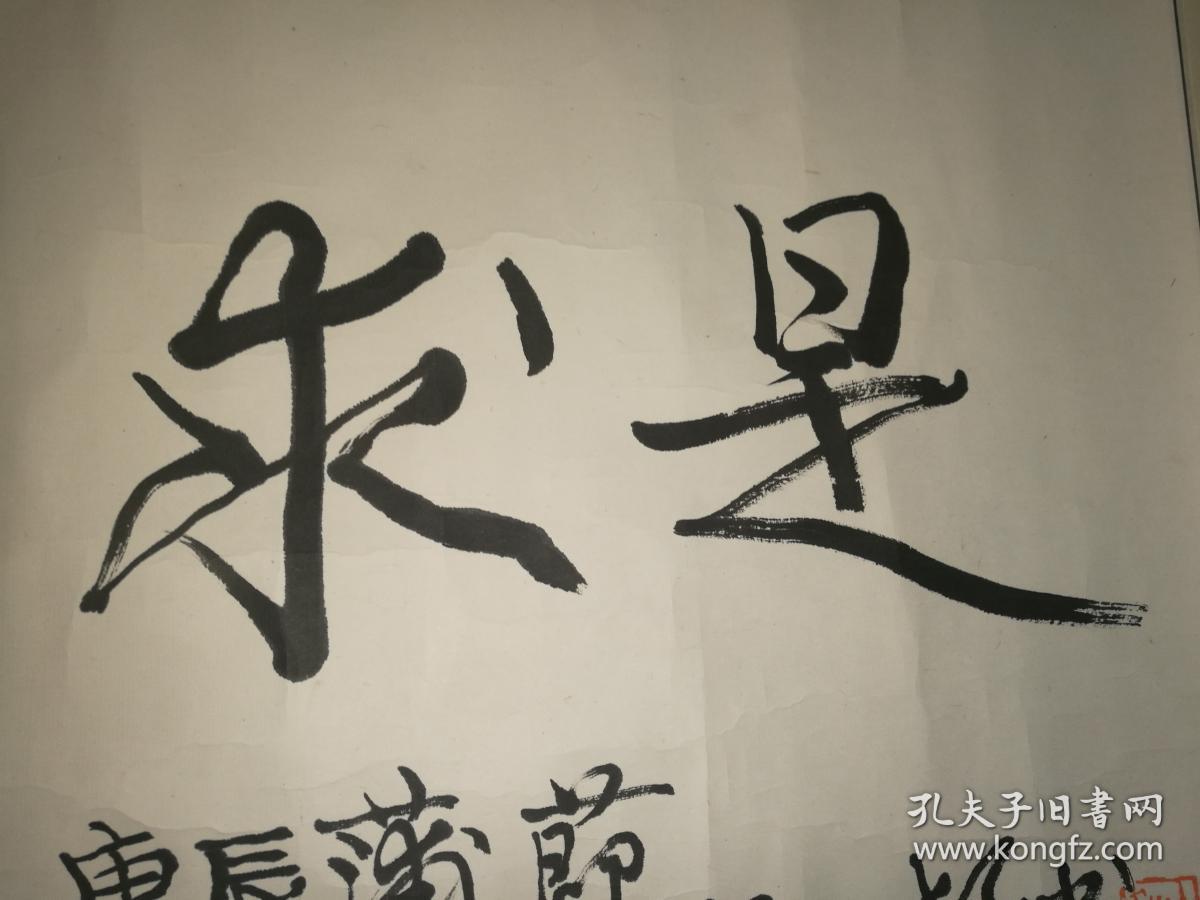 求是
庚辰蒲節
孔夫子旧書网
www.kongfz.com